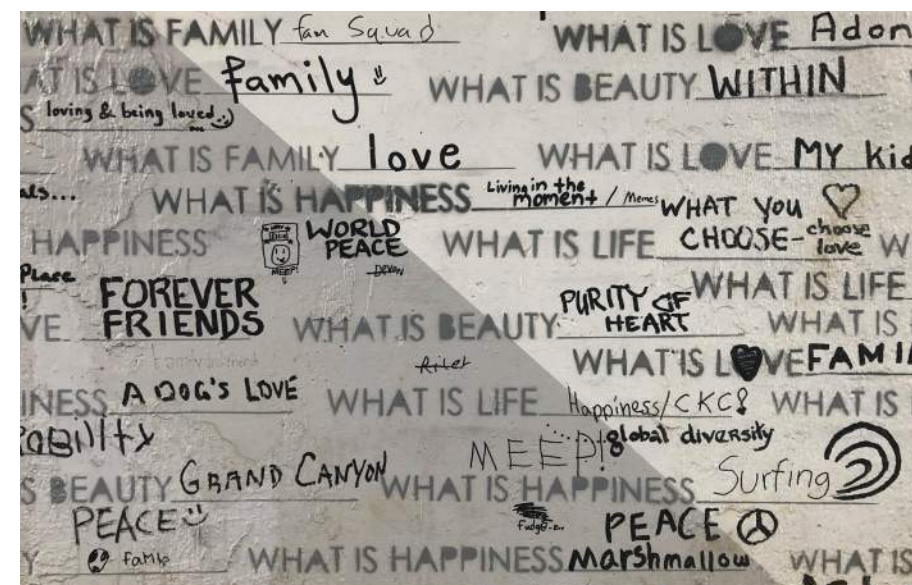 WHAT IS FAMILY fan Squad WHAT IS LOVE Adon
AT IS LOVE family WHAT IS BEAUTY WITHIN
S loving & being loved...
WHAT IS FAMILY love WHAT IS LOVE MY kid
als... WHAT IS HAPPINESS Living in the moment / Memes
WHAT YOU CHOOSE - choose love
HAPPINESS WORLD PEACE WHAT IS LIFE W
MEEP!
Devon
Place
! WHAT IS LIFE
VE FOREVER FRIENDS WHAT IS BEAUTY PURITY OF HEART WHAT IS
WHAT IS LOVE FAMI
INESS A DOG'S LOVE WHAT IS LIFE Happiness/CKC WHAT IS
ability MEEP! global diversity
S BEAUTY GRAND CANYON WHAT IS HAPPINESS Surfing
PEACE PEACE
Y WHAT IS HAPPINESS Marshmallow WHAT IS